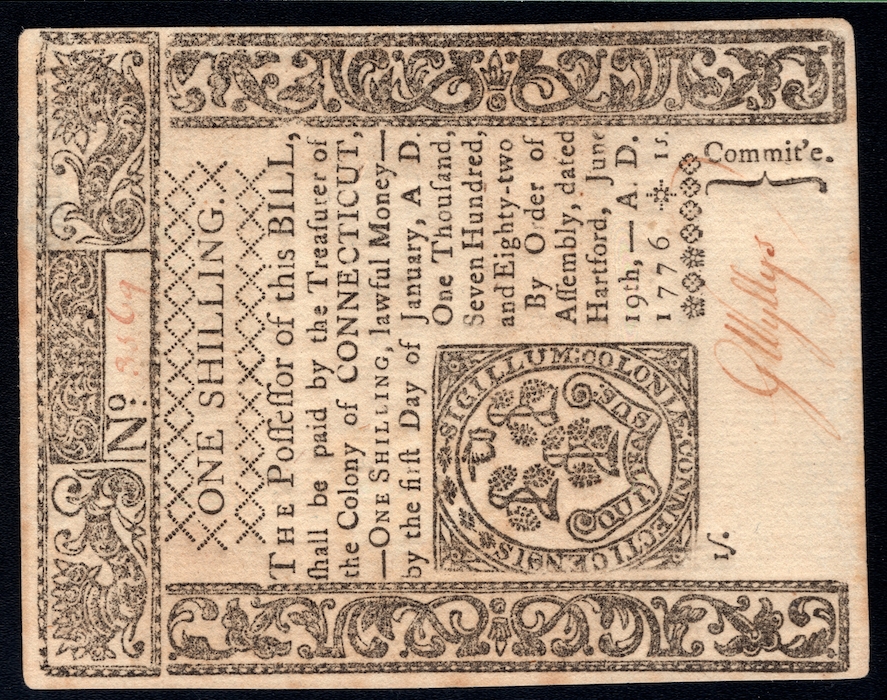 No: 3569
ONE SHILLING.
THE Poſſeſſor of this BILL,
ſhall be paid by the Treaſurer of
the Colony of CONNECTICUT,
—ONE SHILLING, lawful Money—
by the firſt Day of January, A D.
One Thouſand,
Seven Hundred,
and Eighty-two
By Order of
Aſſembly, dated
Hartford, June
19th,— A. D.
1776 1s.
SIGILLUM:COLONIÆ:CONNECTICENSIS
QUI TRAN SUS
1ſ.
Commit'e.
GWyllys